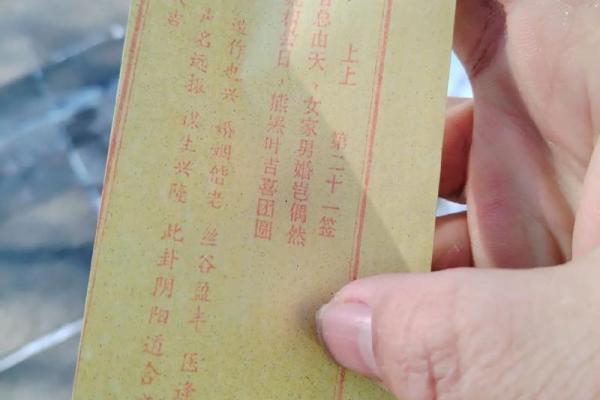 上上 第二十一签
总由天，女家男婚岂偶然
会日，熊罴叶吉喜团圆
造作也兴 婚姻偕老 丝谷盈丰 医逢
声名远振 谋生兴隆 此卦阴阳道合
吉